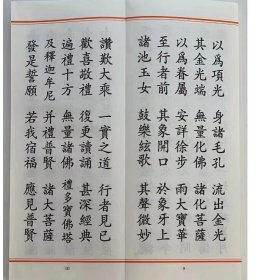 以為項光 身諸毛孔 流出金光
其金光端 無量化佛 諸化菩薩
以為眷屬 安詳徐步 雨大寶華
至行者前 其象開口 於象牙上
諸池玉女 鼓樂絃歌 其聲微妙
讚歎大乘 一實之道 行者見已
歡喜敬禮 復更讀誦 甚深經典
遍禮十方 無量諸佛 禮多寶佛塔
及釋迦牟尼 并禮普賢 諸大菩薩
發是誓願 若我宿福 應見普賢